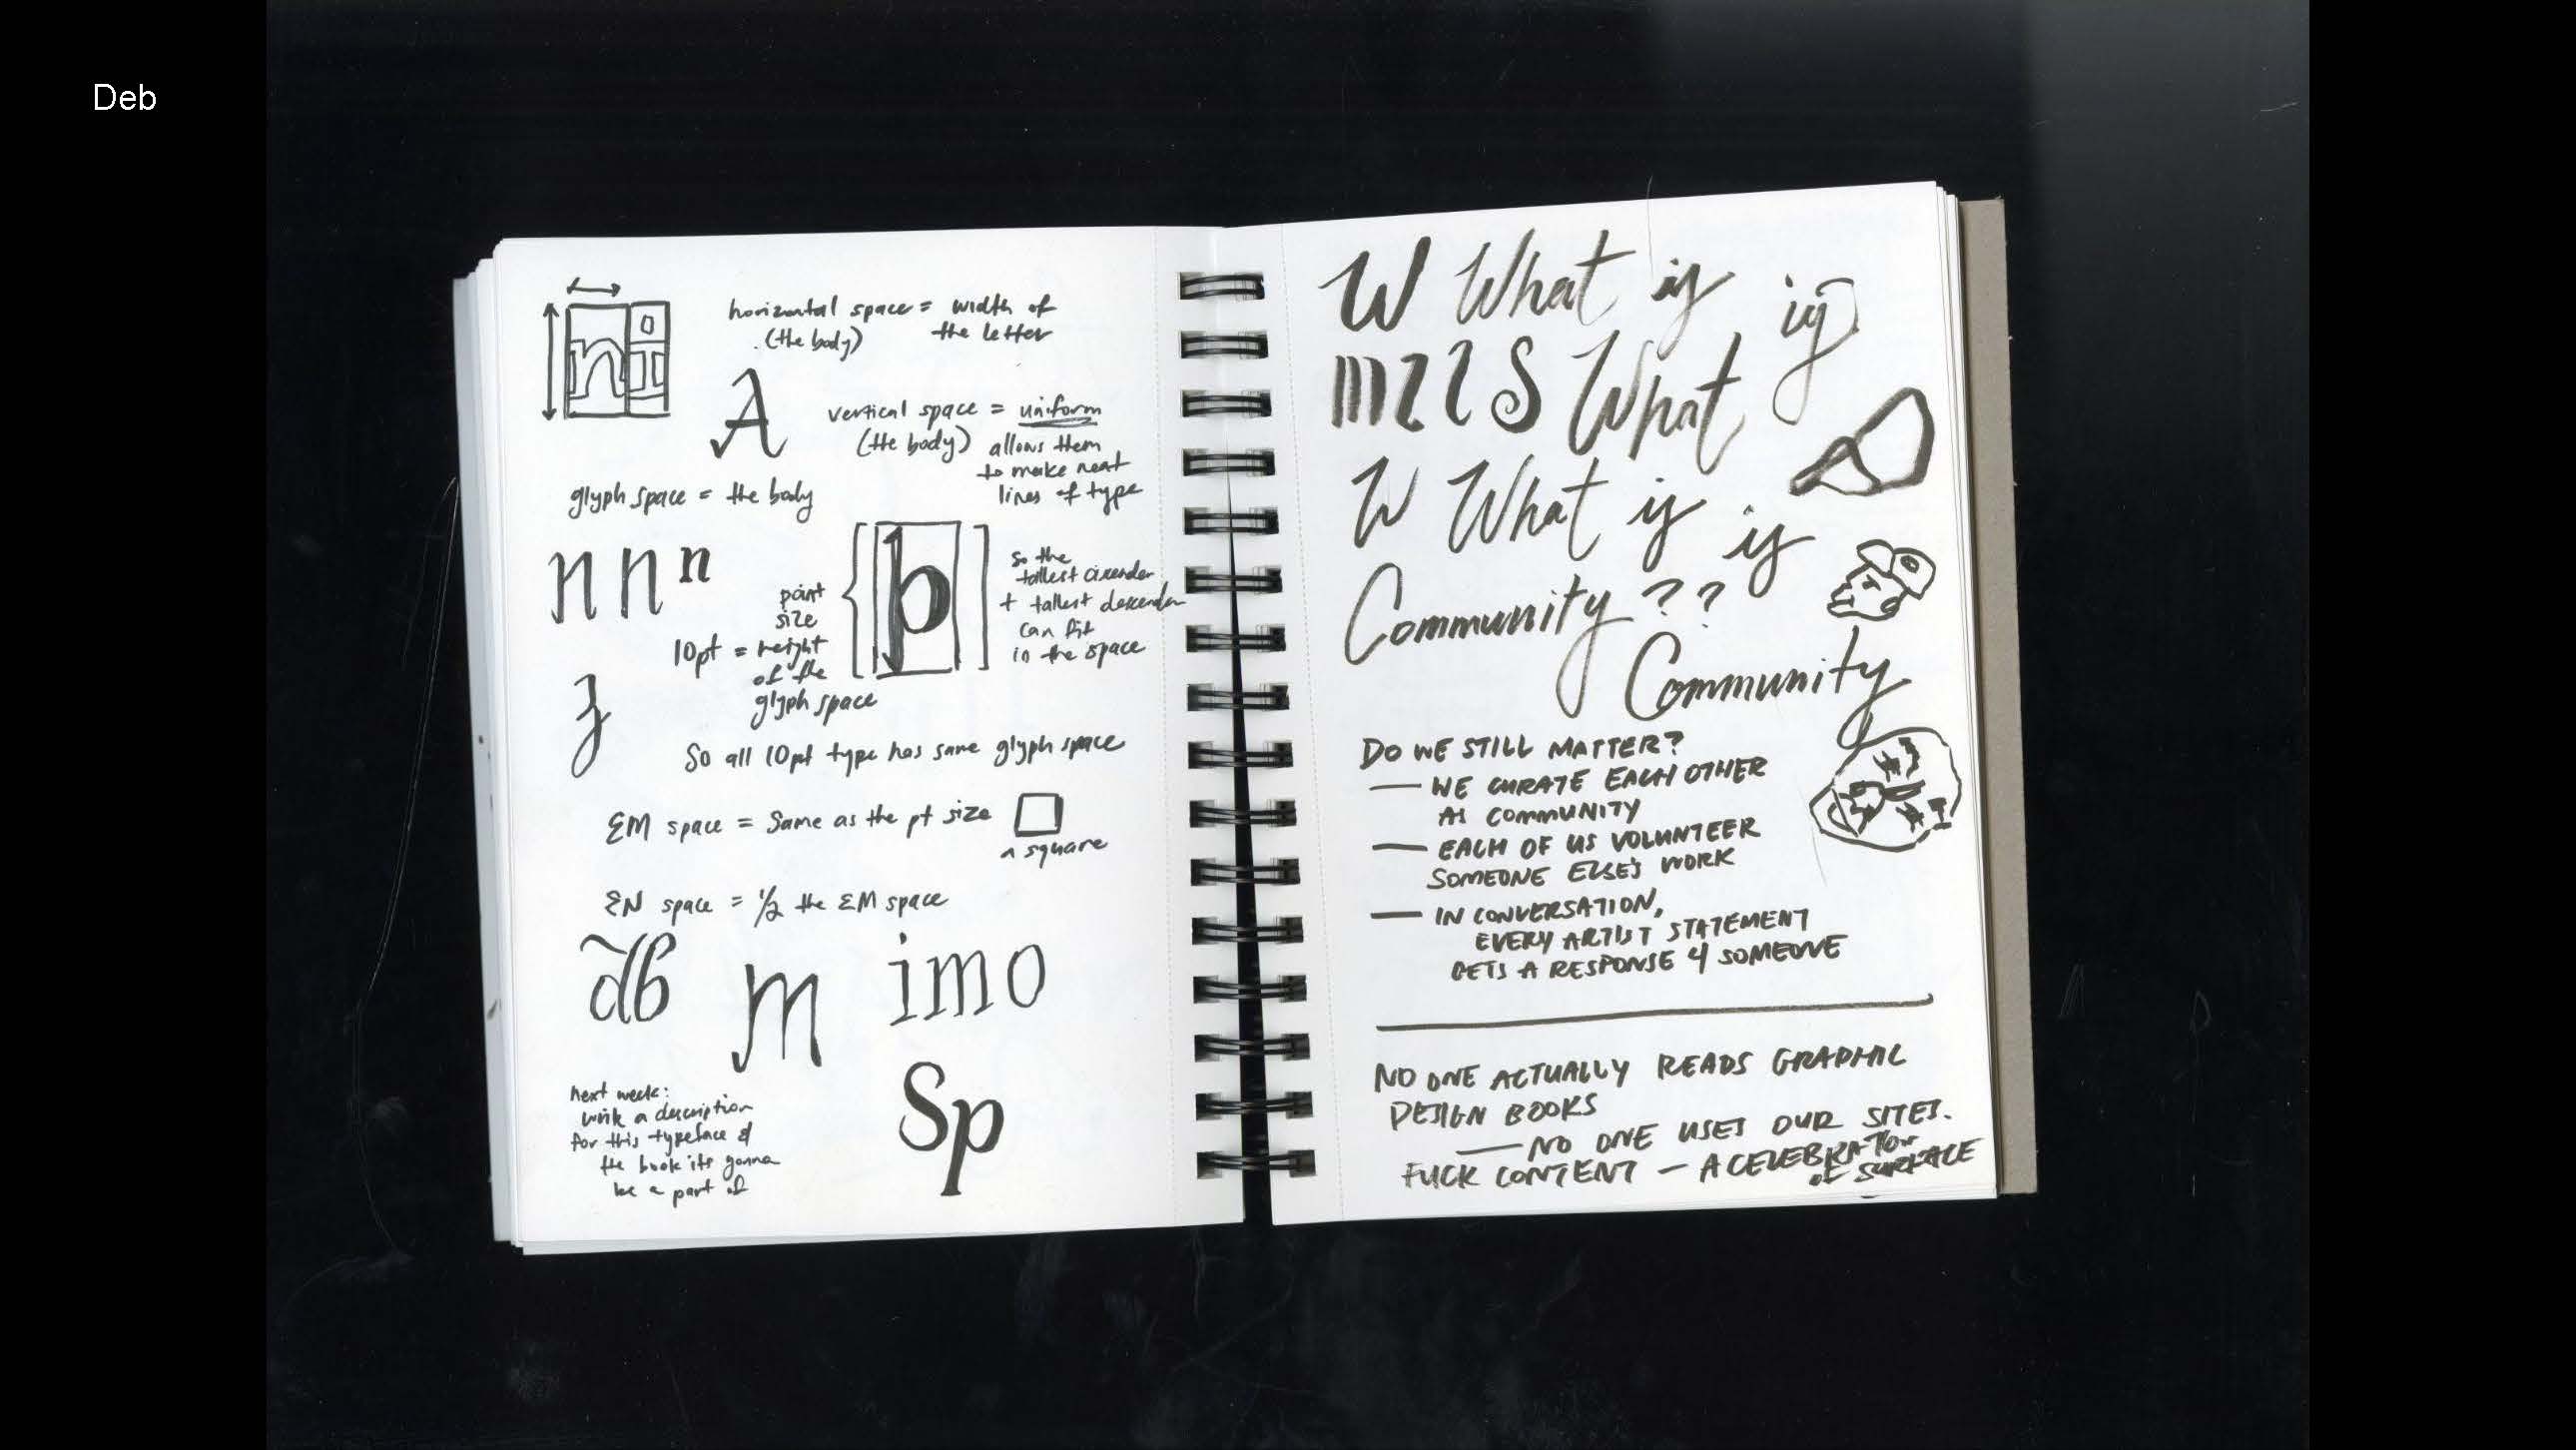 Deb
ni
horizontal space = width of
(the body) the letter
A
vertical space = uniform
(the body) allows them
to make neat
lines of type
glyph space = the body
n n n
b
so the
tallest ascender
+ tallest descender
can fit
in the space
point
size
10pt = height
of the
glyph space
z
So all 10pt type has same glyph space
EM space = Same as the pt size
a square
EN space = 1/2 the EM space
db m imo
Sp
next week:
write a description
for this typeface &
the book its gonna
be a part of
W What is is
What
W What is is
Community ??
Community
DO WE STILL MATTER?
— WE CURATE EACH OTHER
AS COMMUNITY
— EACH OF US VOLUNTEER
SOMEONE ELSE'S WORK
— IN CONVERSATION,
EVERY ARTIST STATEMENT
GETS A RESPONSE 4 SOMEONE
NO ONE ACTUALLY READS GRAPHIC
DESIGN BOOKS
— NO ONE USES OUR SITES.
FUCK CONTENT — A CELEBRATION
OF SURFACE